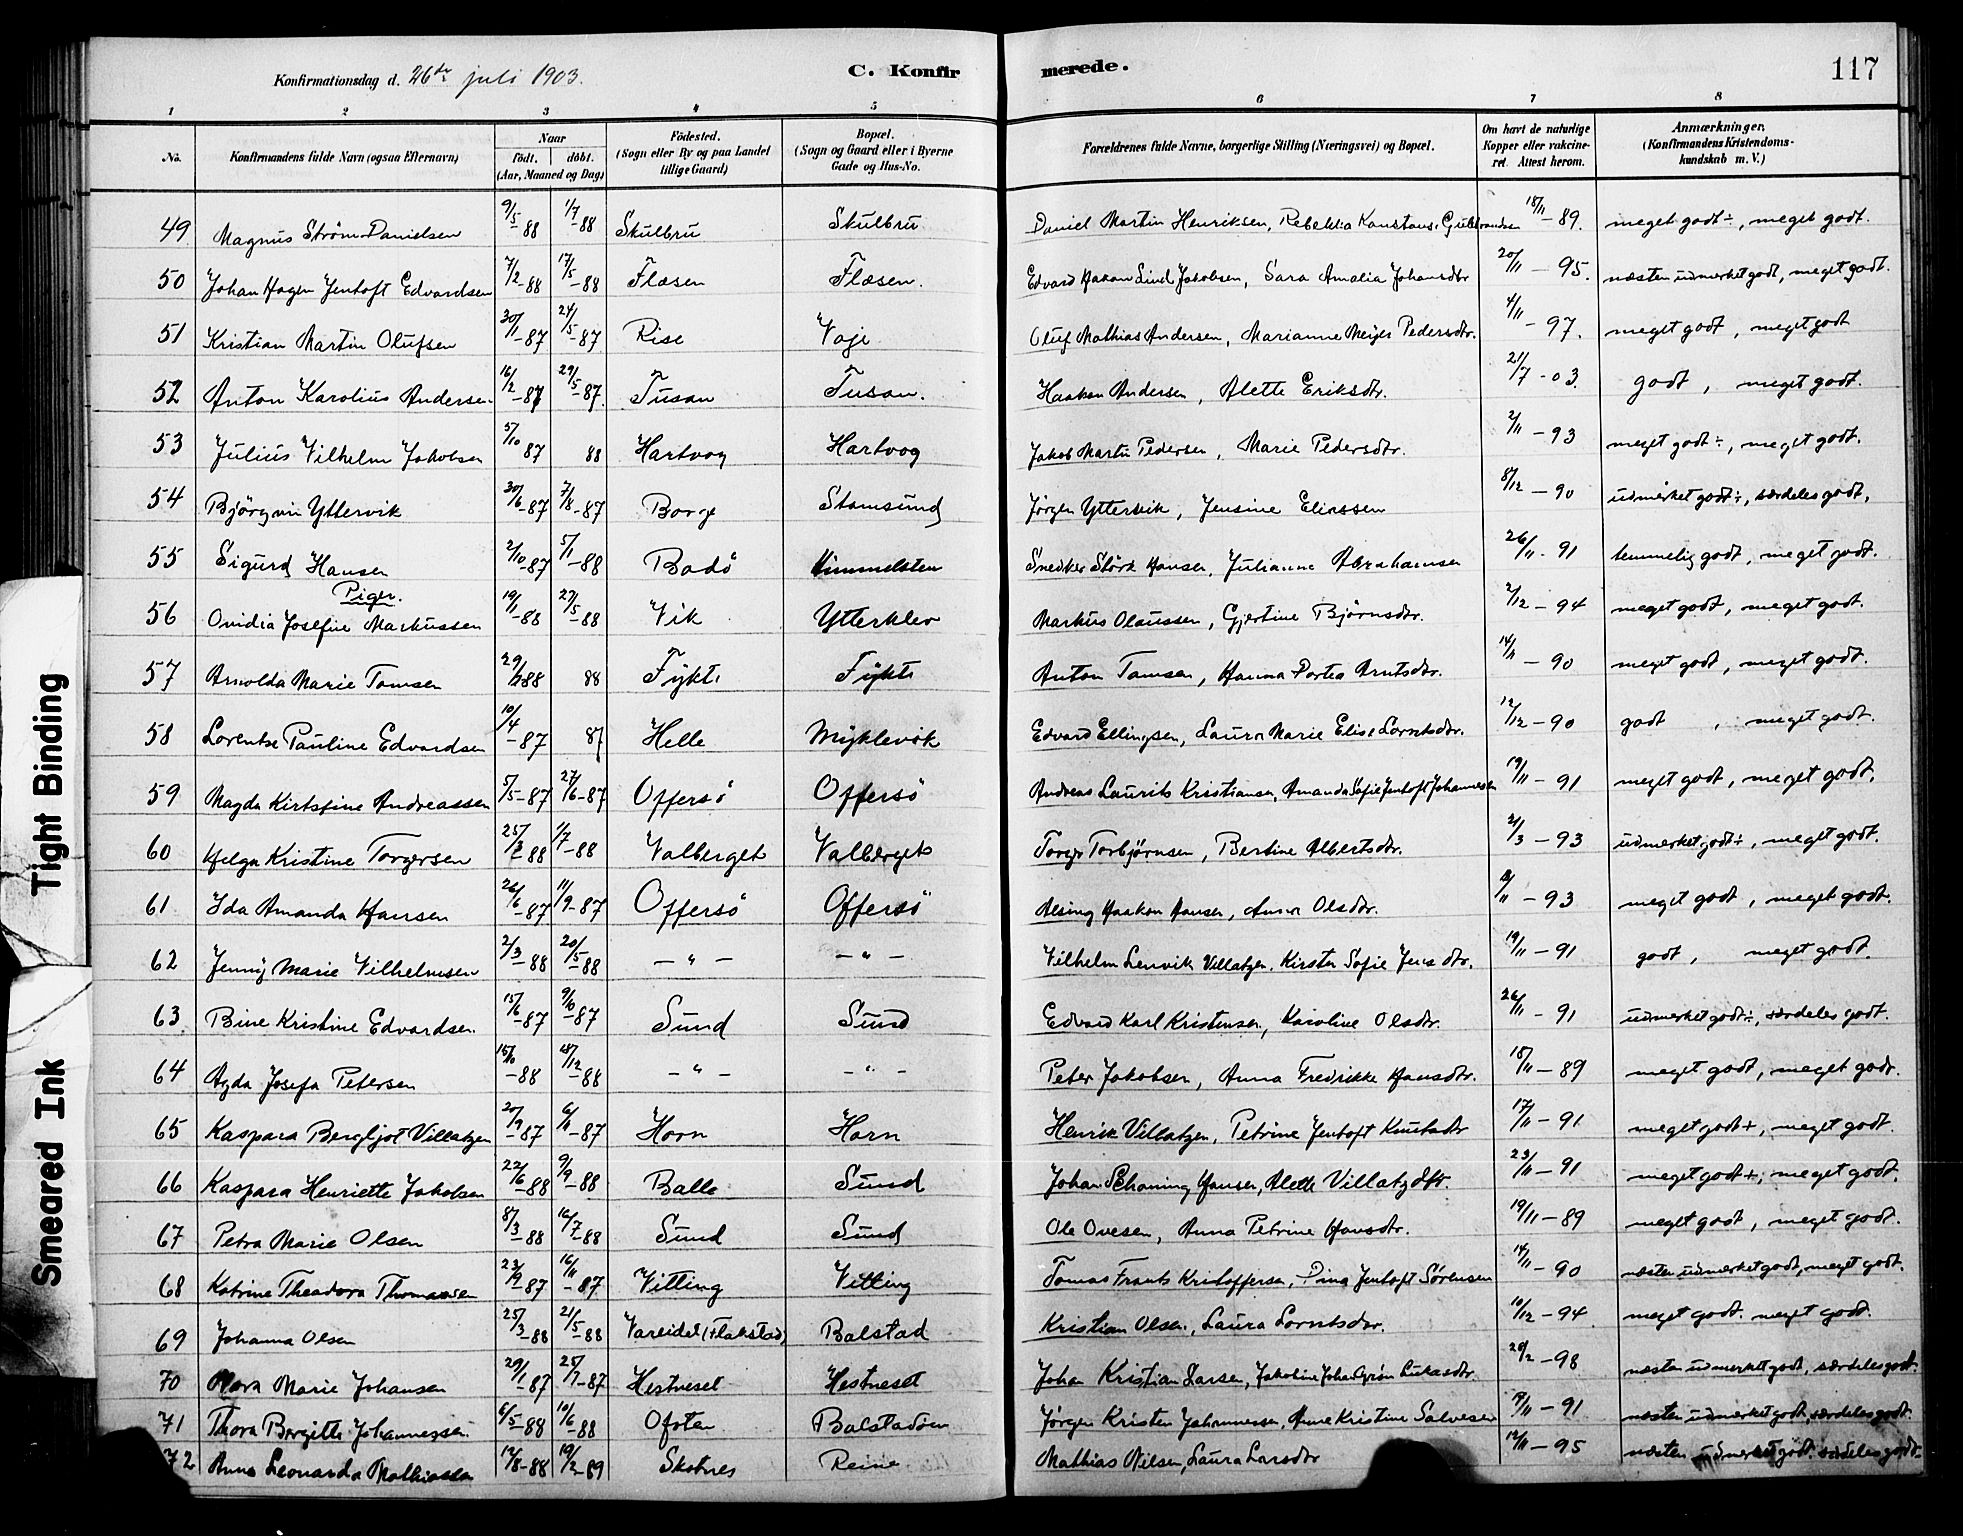 Konfirmationsdag d. 26de juli 1903. C. Konfirmerede. 117
1 2 3 4 5 6 7 8
No. Konfirmandens fulde Navn (ogsaa Efternavn) Naar født. døbt. (Aar, Maaned og Dag) Födested. (Sogn eller By og paa Landet tillige Gaard) Bopæl. (Sogn og Gaard eller i Byerne Gade og Hus-No. Forældrenes fulde Navne, borgerlige Stilling (Næringsvei) og Bopæl. Om havt de naturlige Kopper eller vakcineret. Attest herom. Anmærkninger. (Konfirmandens Kristendomskundskab m. V.)
49 Magnus Strøm Danielsen 9/5-88 1/7-88 Skulbru Skulbru Daniel Martin Henriksen, Rebekka Konstanse Gulbrandsen 18/11-89. meget godt÷, meget godt.
50 Johan Hagen Jentoft Edvardsen 7/2-88 17/5-88 Flæsen Flæsen. Edvard Hakon Lind Jakobsen, Sara Amalia Johansdtr 20/11-95. næsten udmerket godt, meget godt.
51 Kristian Martin Olufsen 30/1-87 24/5-87 Rise Voje Oluf Mathias Andersen, Marianne Meyer Pedersdtr. 4/11-97. meget godt, meget godt
52 Anton Karolius Andersen 16/2-87 29/5-87. Tusan Tusan. Haakon Andersen, Alette Eriksdtr. 21/7-03. godt, meget godt.
53 Julius Vilhelm Jakobsen 5/10 87 88 Hartvog Hartvog Jakob Martin Pedersen, Marie Pedersdtr. 2/11-93 meget godt÷, meget godt.
54 Bjørgvin Yttervik 30/6-87 7/8-87 Borge Stamsund Jørgen Yttervik, Jensine Eliassen 8/12-90 udmerket godt÷, særdeles godt,
55 Sigurd Hansen 2/10-87 5/1-88 Bodö Himmelsten Snedker Störk Hansen, Julianne Abrahamsen 26/11-91 temmelig godt, meget godt.
Piger.
56 Ovidia Josefine Markussen 19/1-88 27/5-88 Vik Ytterklev Markus Olaussen, Gjertine Björnsdtr. 2/12-94 meget godt, meget godt.
57 Arnolda Marie Tomsen 29/2 88 88 Fykti Fykti Anton Tomsen, Hanna Dortea Arntsdtr. 14/11-90 meget godt, meget godt.
58 Lorentse Pauline Edvardsen 10/4-87 87 Helle Myklevik Edvard Ellingsen, Laura Marie Elise Lorntsdtr. 12/12-90 godt, meget godt.
59 Magda Kirtstine Andreassen 5/5-87 27/6-87 Offersö Offersö Andreas Laurits Kristiansen, Amanda Sofie Jentoft Johannesen 19/11-91 meget godt, meget godt,
60 Helga Kristine Torgersen 25/2 88 1/7-88 Valberget Valberget Torger Torbjørnsen, Bertine Albertsdtr. 2/3-93 udmerket godt÷, meget godt.
61 Ida Amanda Hansen 26/6-87 11/9-87 Offersö Offersö Alsing Haakon Hansen, Anna Olsdtr. 11-93 meget godt, meget godt.
62 Jenny Marie Vilhelmsen 2/3-88 20/5-88 — " — — " — Vilhelm Lenvik Villatzen, Kirsten Sofie Jensdtr. 19/11-91 godt, meget godt.
63 Bine Kristine Edvardsen. 15/6-87 87 Sund Sund Edvard Karl Kristensen, Karoline Olsdtr. 26/11-91 udmerket godt÷, særdeles godt.
64 Agda Josefa Petersen 15/10-88 18/12-88 — " — — " — Peter Jakobsen, Anna Fredrikke Hansdtr. 18/11-89 meget godt, meget godt.
65 Kaspara Bergljot Villatzen 20/9-87 6/11-87 Horn Horn Henrik Villatzen, Petrine Jentoft Knutsdtr 17/11-91 meget godt+, meget godt.
66 Kaspara Henriette Jakobsen 22/6-88 9/9-88 Balle Sund Johan Schøning Hansen, Aleth Villatzdtr. 23/11-91 meget godt+, meget godt.
67 Petra Marie Olsen 8/3-88 16/7-88 Sund Sund Ole Ovesen, Anna Petrine Hansdtr. 19/11-89 meget godt, meget godt.
68 Katrine Theodora Thomassen 23/9-87 16/11-87 Vitting Vitting Tomas Frants Kristoffersen, Dina Jentoft Sørensen 14/11-90 næsten udmerket godt, meget godt.
69 Johanna Olsen 25/3-88 21/5-88 Vareidet (Flakstad) Balstad Kristian Olsen, Laura Lorntsdtr. 10/12-94 meget godt. meget godt.
70 Marie Johansen 29/1-87 25/7-87 Hestneset Hestneset Johan Kristian Larsen, Jakobine Johan Grøn Lukasdtr. 20/2-98 næsten udmerket godt, særdeles godt.
71 Thora Bergitte Johannessen 6/5-88 10/6-88 Ofoten Balstadøen Jørgen Kristen Johannessen, Anne Kristine Salvesen 17/11-91 næsten udmerket godt, særdeles godt.
72 Anna Leonarda Mathiassen 12/8-88 19/2-89 Skotnes Reine Mathias Nilsen, Laura Larsdtr 12/11-95 næsten udmerket godt. særdeles godt.
Tight Binding
Smeared Ink